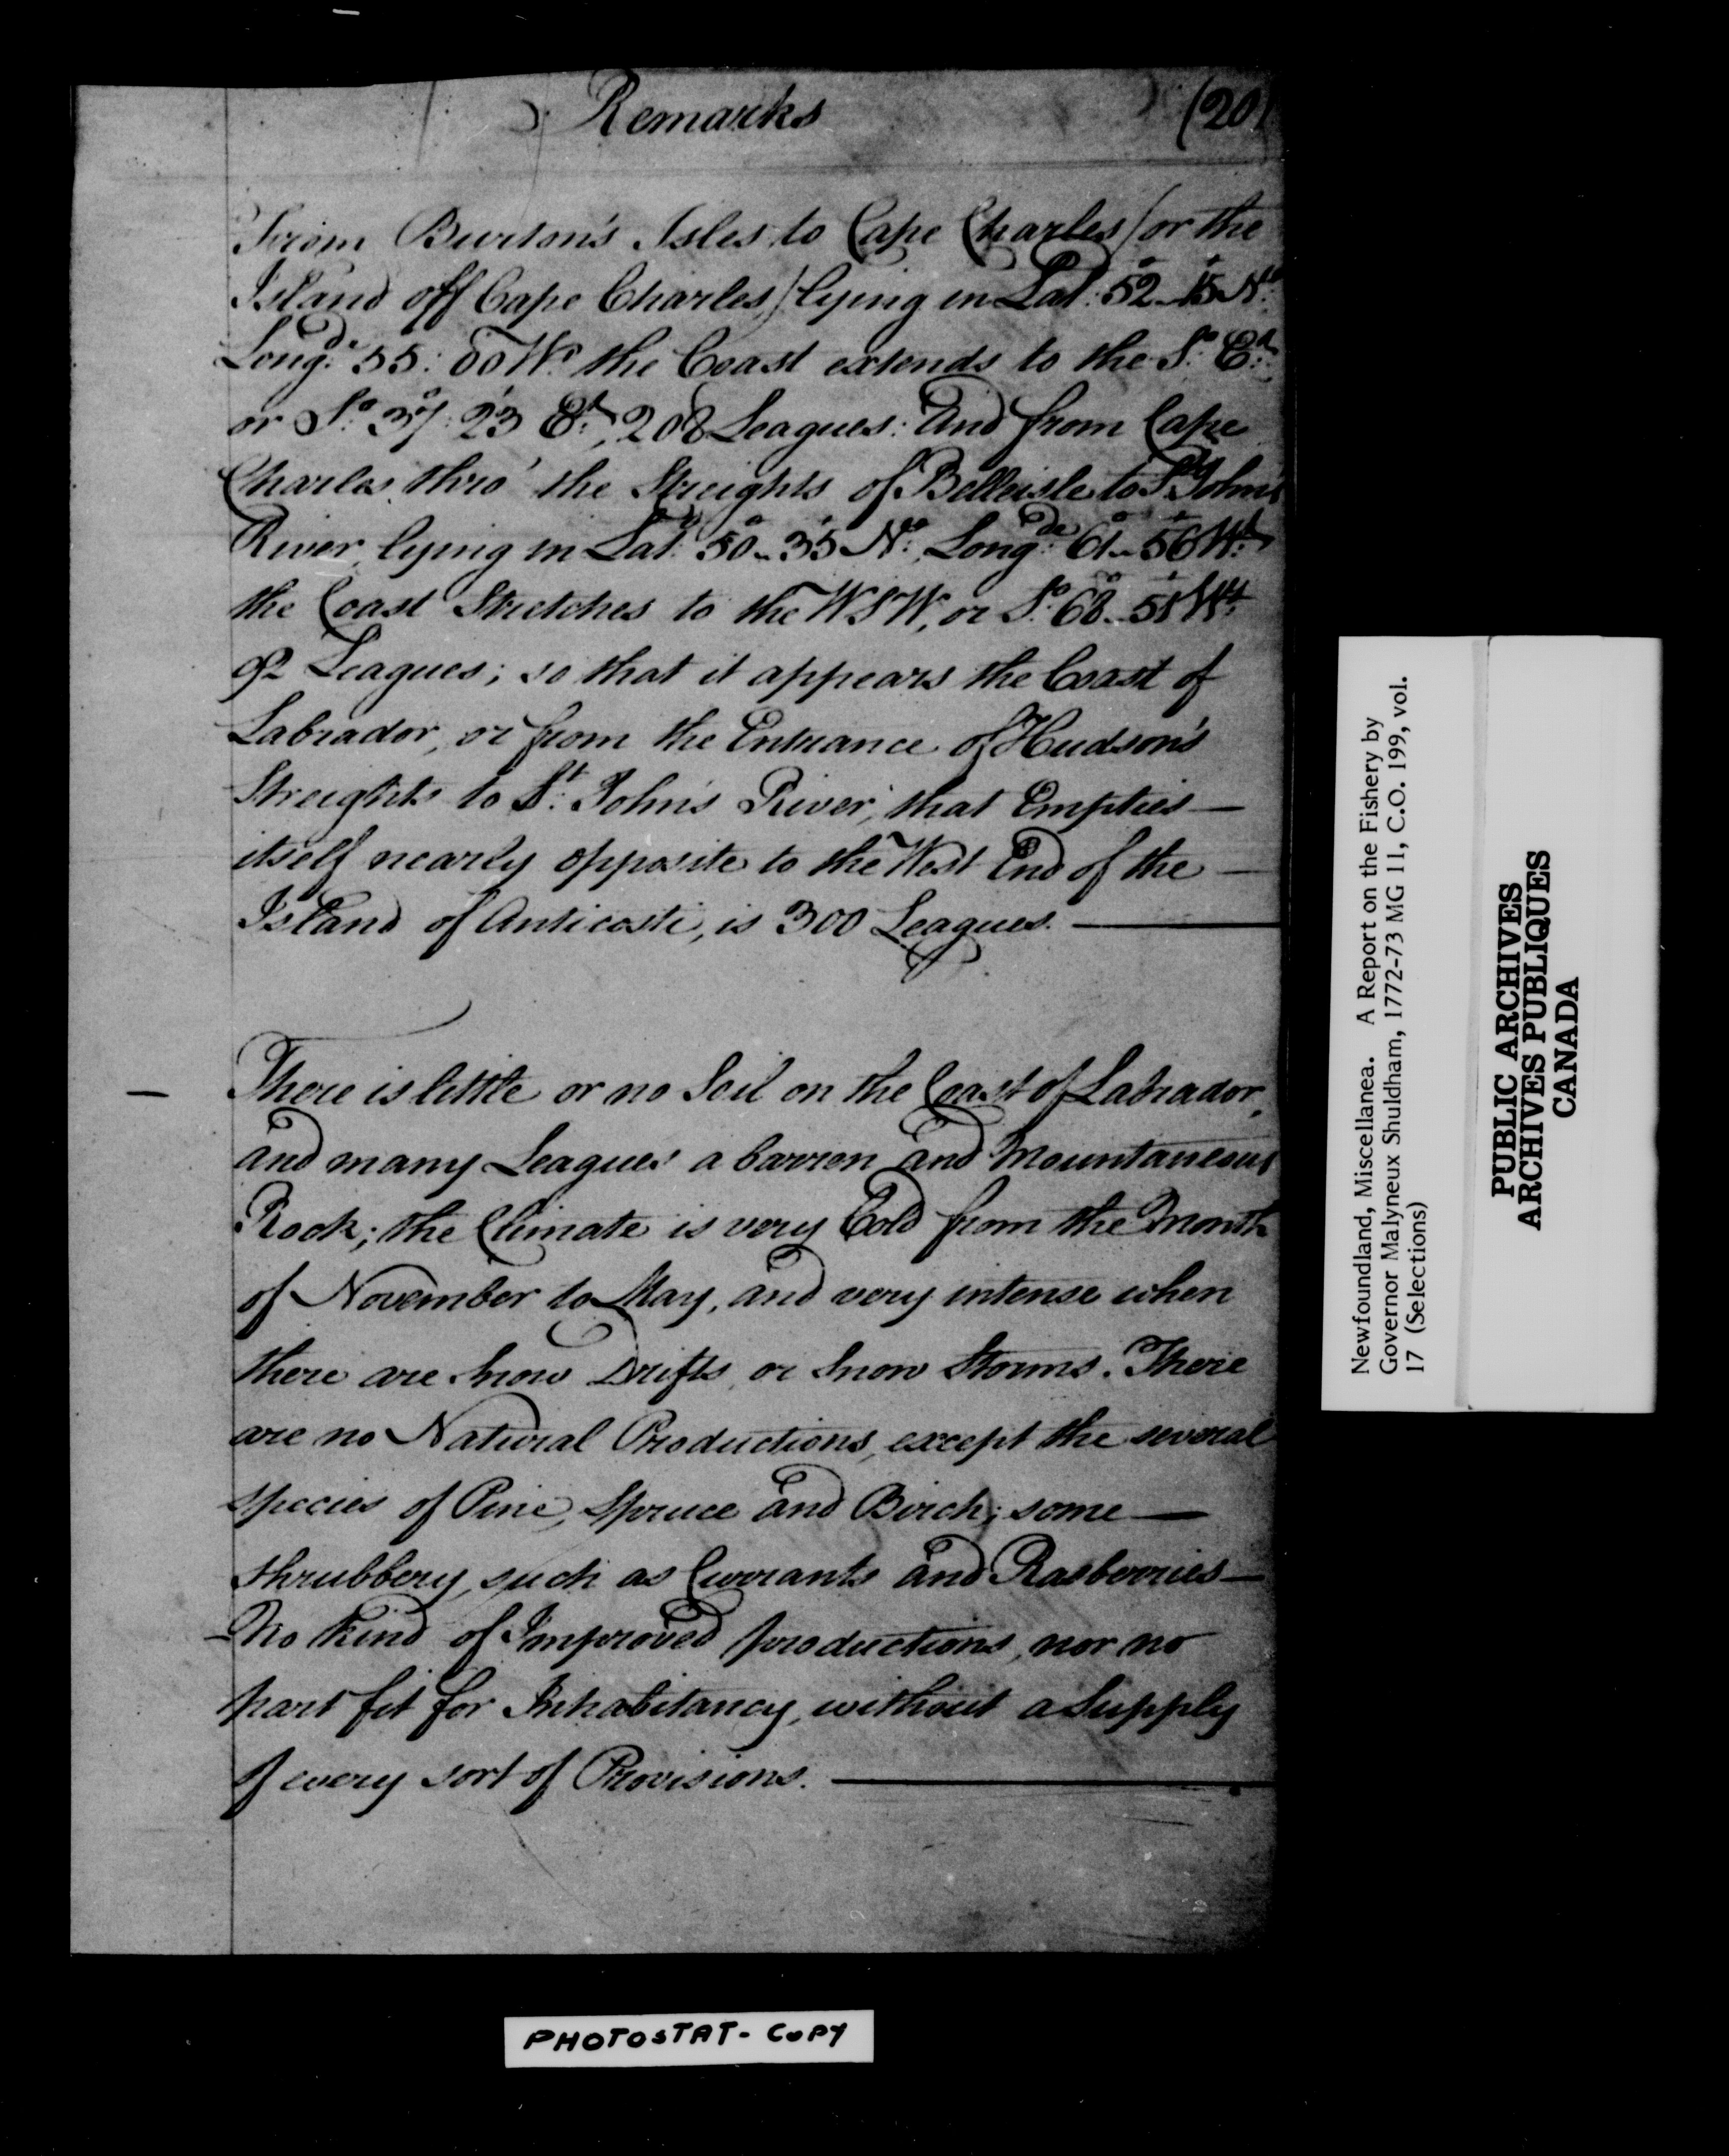 Remarks
(20)
From Burton's Isles to Cape Charles (or the
Island off Cape Charles) lying in Lat: 52°-15' No:
Longde: 55: 00 Wt: the Coast extends to the So: Et:
or So: 37°: 23' Et:, 208 Leagues: And from Cape
Charles thro' the Streights of Belleisle to St: John's
River, lying in Lat: 50°-35' No:, Longde: 61°-56' Wt:
the Coast Stretches to the WSW, or So: 68°-58' Wt:
92 Leagues; so that it appears the Coast of
Labrador, or from the Entrance of Hudson's
Streights to St: John's River, that Empties —
itself nearly opposite to the West End of the —
Island of Anticosti, is 300 Leagues. —
— There is little or no Soil on the Coast of Labrador,
and many Leagues a barren and Mountaneous
Rock; the Climate is very Cold from the Month
of November to May, and very intense when
there are Snow Drifts, or Snow Storms. There
are no Natural Productions, except the several
species of Pine, Spruce and Birch; some —
shrubbery, such as Currants and Rasberries —
— No kind of Improved productions, nor no
part fit for Inhabitancy, without a Supply
of every sort of Provisions. —
Newfoundland, Miscellanea. A Report on the Fishery by
Governor Malyneux Shuldham, 1772-73 MG 11, C.O. 199, vol.
17 (Selections)
PUBLIC ARCHIVES
ARCHIVES PUBLIQUES
CANADA
PHOTOSTAT - COPY